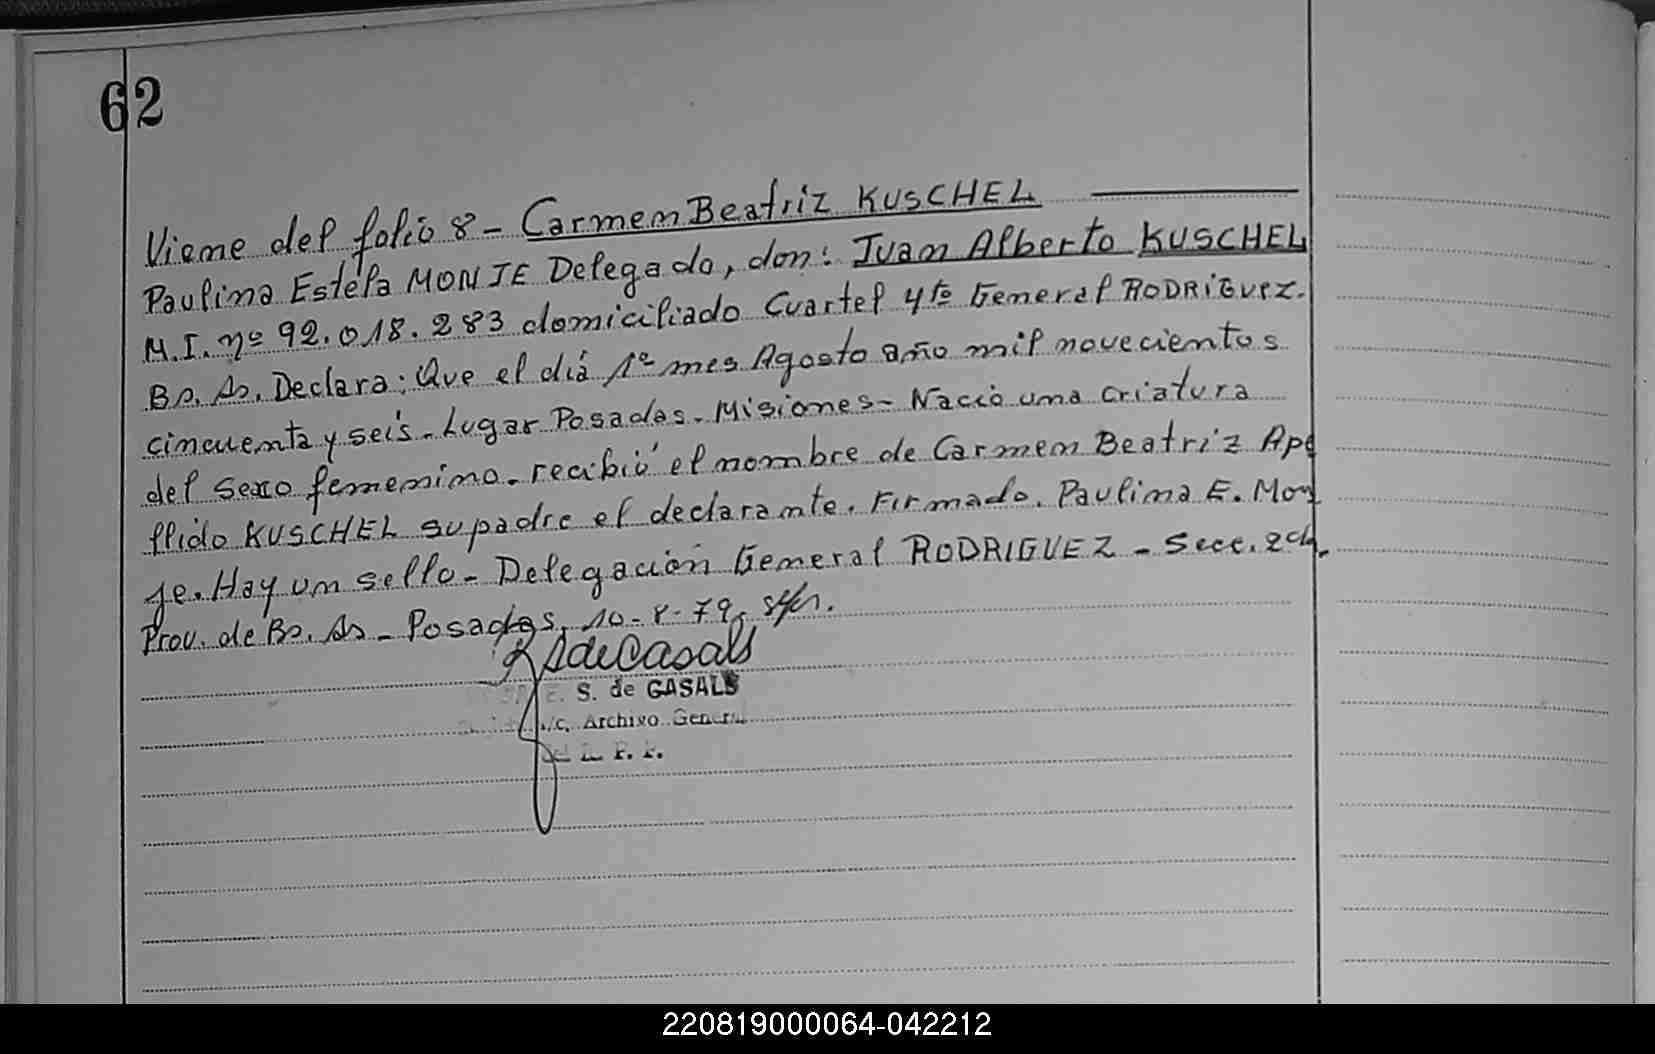 62
Viene del folio 8 - Carmen Beatriz KUSCHEL
Paulina Estela MONJE Delegado, don: Juan Alberto KUSCHEL
M.I. nº 92.018.283 domiciliado Cuartel 4to General RODRIGUEZ.
Bs. As. Declara: Que el diá 1º mes Agosto año mil novecientos
cincuenta y seis. Lugar Posadas. Misiones - Nació una criatura
del sexo femenino. recibió el nombre de Carmen Beatriz Ape
llido KUSCHEL su padre el declarante. Firmado. Paulina E. Mon
je. Hay un sello - Delegación General RODRIGUEZ - Secc. 2da.
Prov. de Bs. As - Posadas, 10-8-79
S de Casals
E. S. de CASALS
a/c. Archivo General
220819000064-042212